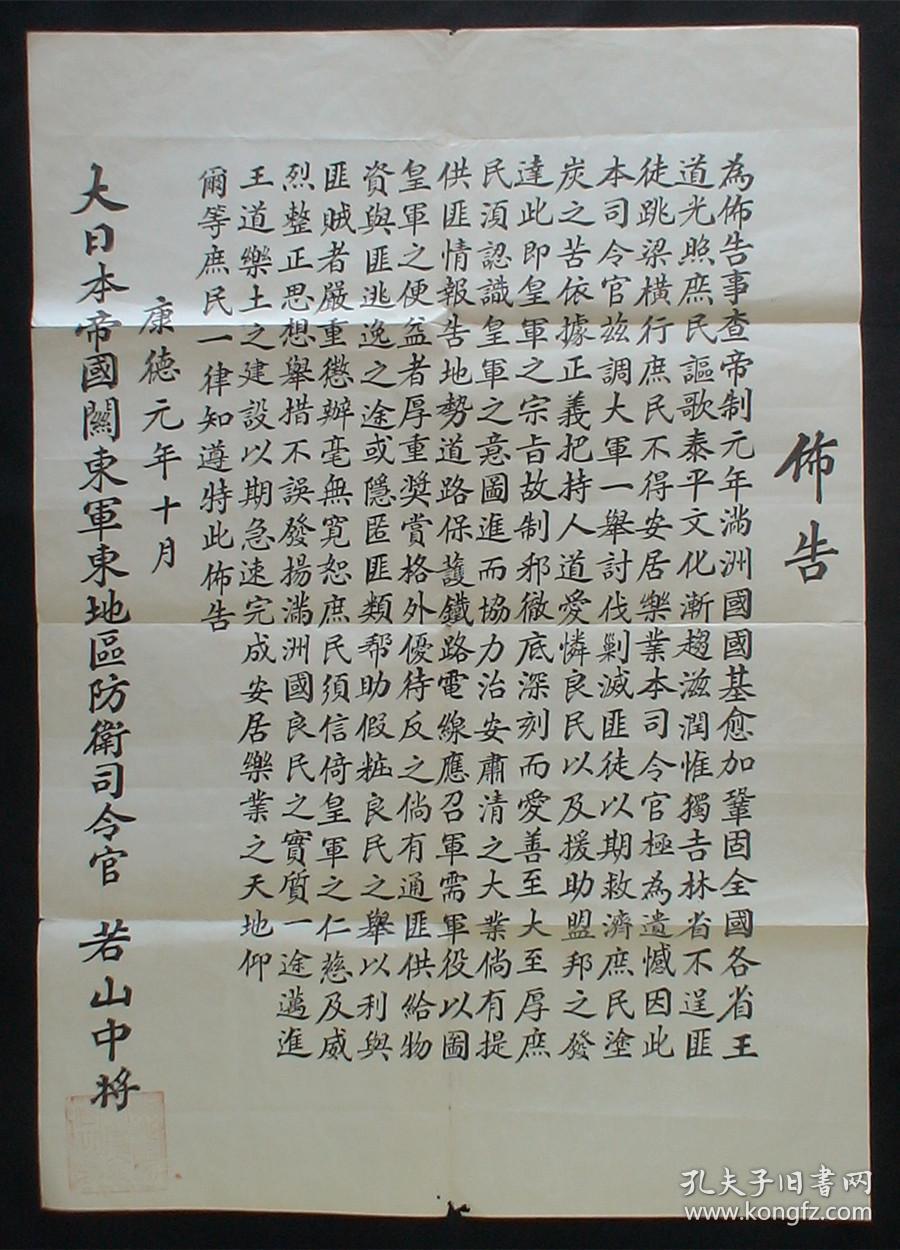 佈告
為佈告事查帝制元年滿洲國國基愈加鞏固全國各省王
道光照庶民謳歌泰平文化漸趨滋潤惟獨吉林省不逞匪
徒跳梁橫行庶民不得安居樂業本司令官極為遺憾因此
本司令官玆調大軍一舉討伐剿滅匪徒以期救濟庶民塗
炭之苦依據正義把持人道愛憐良民以及援助盟邦之發
達此即皇軍之宗旨故制邪徹底深刻而愛善至大至厚庶
民須認識皇軍之意圖進而協力治安肅清之大業倘有提
供匪情報告地勢道路保護鐵路電線應召軍需軍役以圖
皇軍之便益者厚重獎賞格外優待反之倘有通匪供給物
資與匪逃逸之途或隱匿匪類帮助假粧良民之舉以利與
匪賊者嚴重懲辦毫無寬恕庶民須信倚皇軍之仁慈及威
烈整正思想舉措不誤發揚滿洲國良民之實質一途邁進
王道樂土之建設以期急速完成安居樂業之天地仰
爾等庶民一律知遵特此佈告
康德元年十月
大日本帝國關東軍東地區防衛司令官 若山中将
孔夫子旧书网
www.kongfz.com